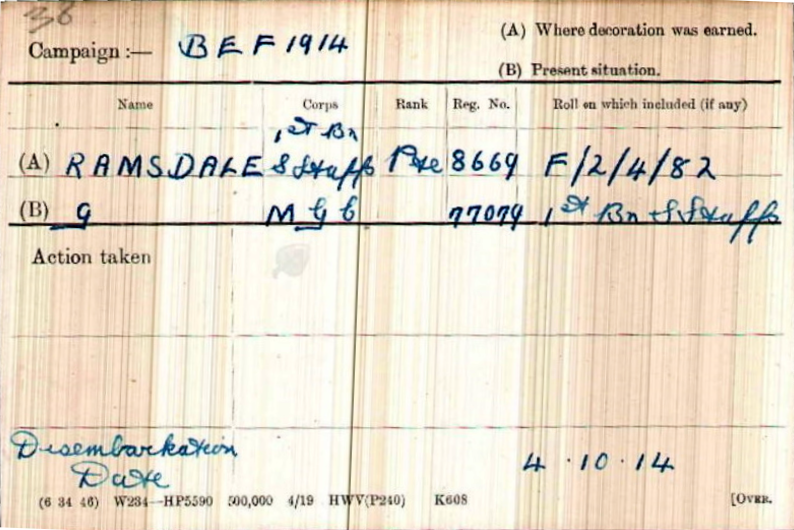 36
Campaign :— B E F 1914
(A) Where decoration was earned.
(B) Present situation.
Name Corps Rank Reg. No. Roll on which included (if any)
1st Bn
(A) RAMSDALE S Staffs Pte 8669 F/2/4/82
(B) G M G C 77079 1st Bn S Staffs
Action taken
Disembarkation
Date 4 . 10 . 14
(6 34 46) W234—HP5590 500,000 4/19 HWV(P240) K608 [OVER.